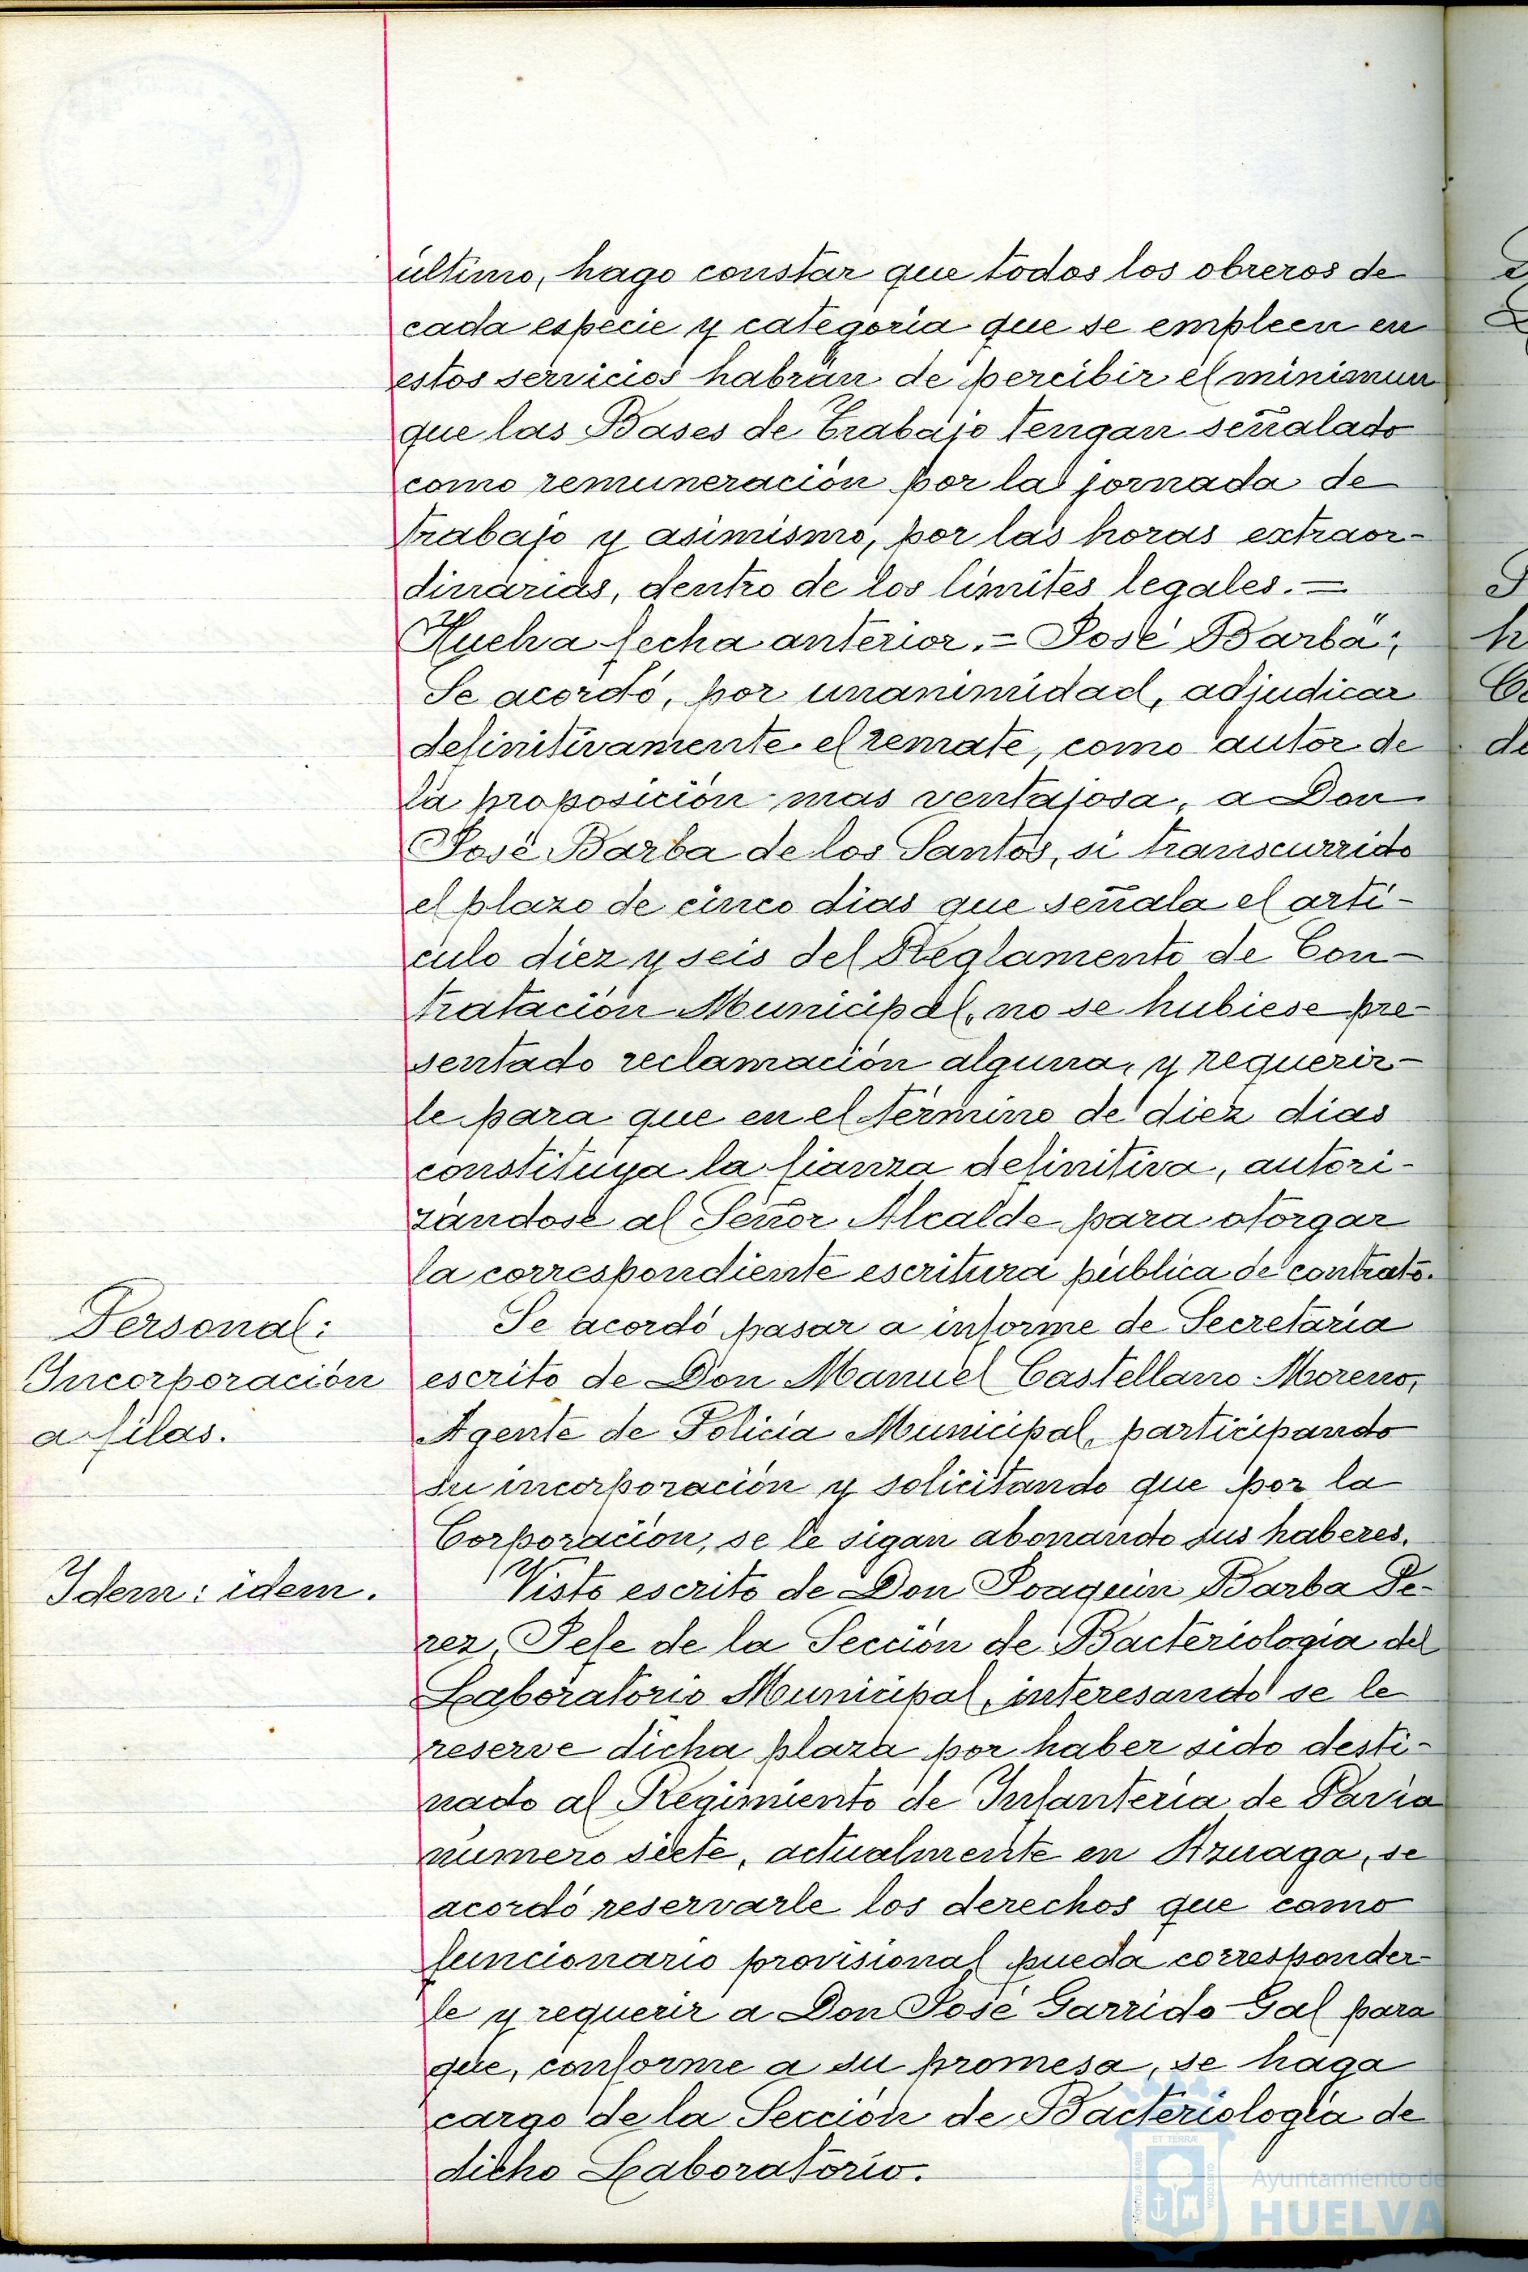 último, hago constar que todos los obreros de
cada especie y categoria que se empleen en
estos servicios habrán de percibir el minimun
que las Bases de Trabajo tengan señalado
como remuneración por la jornada de
trabajo y asimismo, por las horas extraor-
dinarias, dentro de los limites legales. =
Huelva fecha anterior. = José Barba";
Se acordó, por unanimidad, adjudicar
definitivamente el remate, como autor de
la proposición mas ventajosa, a Don
José Barba de los Santos, si transcurrido
el plazo de cinco dias que señala el arti-
culo diez y seis del Reglamento de Con-
tratación Municipal, no se hubiese pre-
sentado reclamación alguna, y requerir-
le para que en el término de diez dias
constituya la fianza definitiva, autori-
zándose al Señor Alcalde para otorgar
la correspondiente escritura pública de contrato.
Personal:
Incorporación
a filas.
Se acordó pasar a informe de Secretaría
escrito de Don Manuel Castellano Moreno,
Agente de Policía Municipal, participando
su incorporación y solicitando que por la
Corporación, se le sigan abonando sus haberes.
Idem: idem.
Visto escrito de Don Joaquin Barba Pe-
rez, Jefe de la Sección de Bacteriología del
Laboratorio Municipal, interesando se le
reserve dicha plaza por haber sido desti-
nado al Regimiento de Infantería de Pavía
número siete, actualmente en Azuaga, se
acordó reservarle los derechos que como
funcionario provisional pueda corresponder-
le y requerir a Don José Garrido Gal para
que, conforme a su promesa, se haga
cargo de la Sección de Bacteriología de
dicho Laboratorio.
Ayuntamiento de
HUELVA